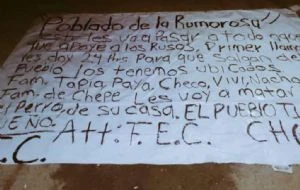 Poblado de la Rumorosa"
Esto les va a Pasar a todo aquel
que apoye a los Rusos. Primer llama
les doy 24 Hrs Para que Salgan de
Pueblo los tenemos ubicados
Fam. Tapia, Paya, Checo, Vivi, Nacho
Fam. de Chepe Les voy a matar
el Perro, de su casa. EL PUEBLO T
EÑO. Att: F.E.C. CH
.C.